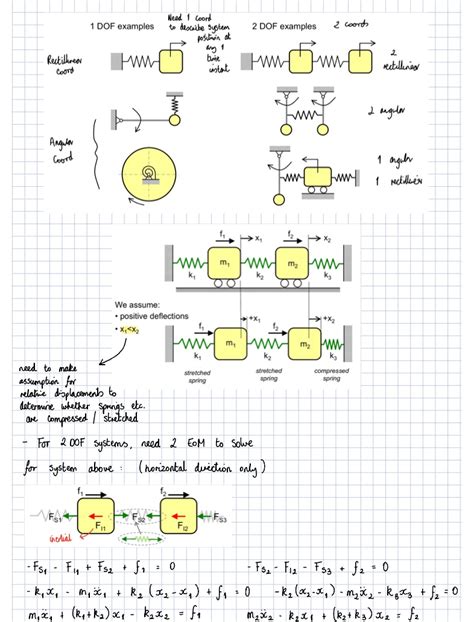 1 DOF examples
Need 1 coord
to describe system
position at
any 1
time
instant
2 DOF examples
2 coords
Rectilinear
coord
2
rectilinear
Angular
Coord
2 angular
1 angular
1 rectilinear
f₁ x₁ f₂ x₂
m₁ m₂
k₁ k₂ k₃
We assume:
• positive deflections
• x₁<x₂
+x₁ +x₂
f₁ f₂
m₁ m₂
k₁ k₂ k₃
stretched spring
stretched spring
compressed spring
need to make
assumption for
relative displacements to
determine whether springs etc.
are compressed / stretched
- For 2 DOF systems, need 2 EoM to solve
for system above : (horizontal direction only)
f₁ f₂
F_S1 F_I1 F_S2 F_I2 F_S3
inertial
- F_S1 - F_I1 + F_S2 + f₁ = 0
- F_S2 - F_I2 - F_S3 + f₂ = 0
- k₁x₁ - m₁ẍ₁ + k₂(x₂-x₁) + f₁ = 0
- k₂(x₂-x₁) - m₂ẍ₂ - k₃x₂ + f₂ = 0
m₁ẍ₁ + (k₁+k₂)x₁ - k₂x₂ = f₁
m₂ẍ₂ - k₂x₁ + (k₂+k₃)x₂ = f₂